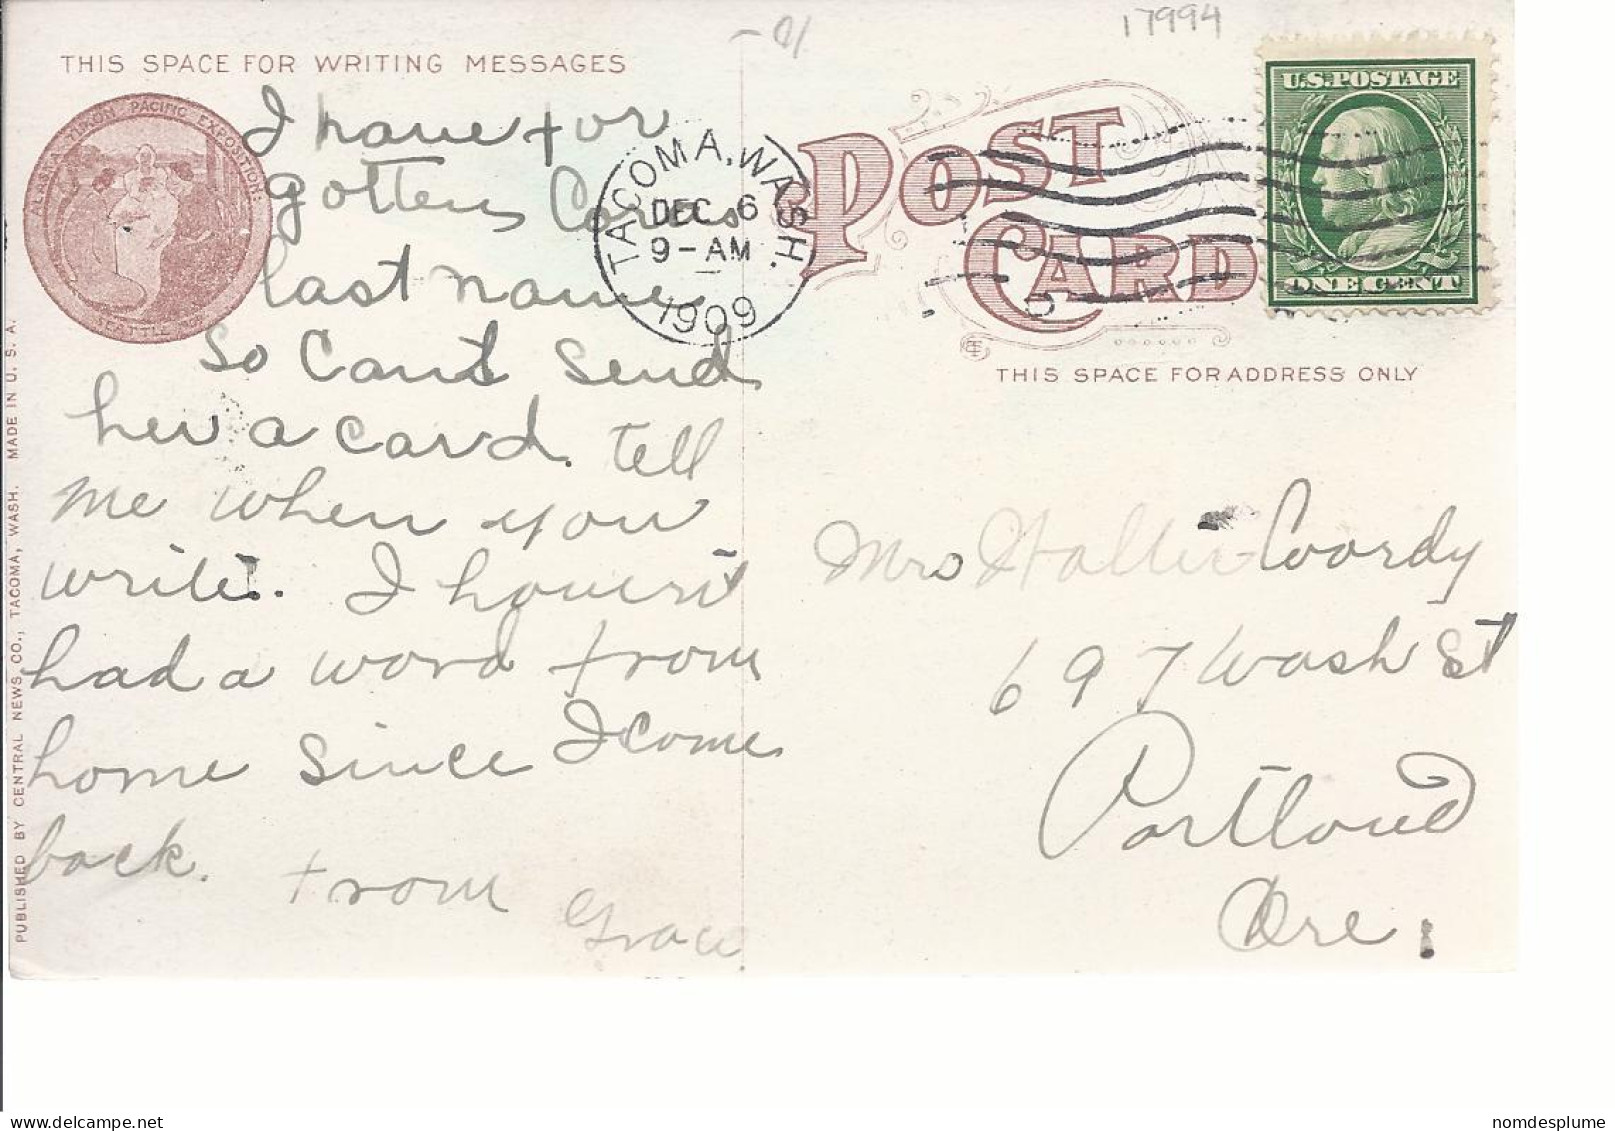 17994
THIS SPACE FOR WRITING MESSAGES
ALASKA YUKON PACIFIC EXPOSITION
SEATTLE
I have for
gotten
last name
so Can't send
her a card. tell
me when you
write. I haven't
had a word from
home since I come
back. from
Grace
PUBLISHED BY CENTRAL NEWS CO., TACOMA, WASH. MADE IN U. S. A.
TACOMA, WASH.
DEC 6
9-AM
1909
POST CARD
U.S. POSTAGE
ONE CENT
THIS SPACE FOR ADDRESS ONLY
Mrs Coordy
697 Wash St
Portland
Ore.
nomdesplume